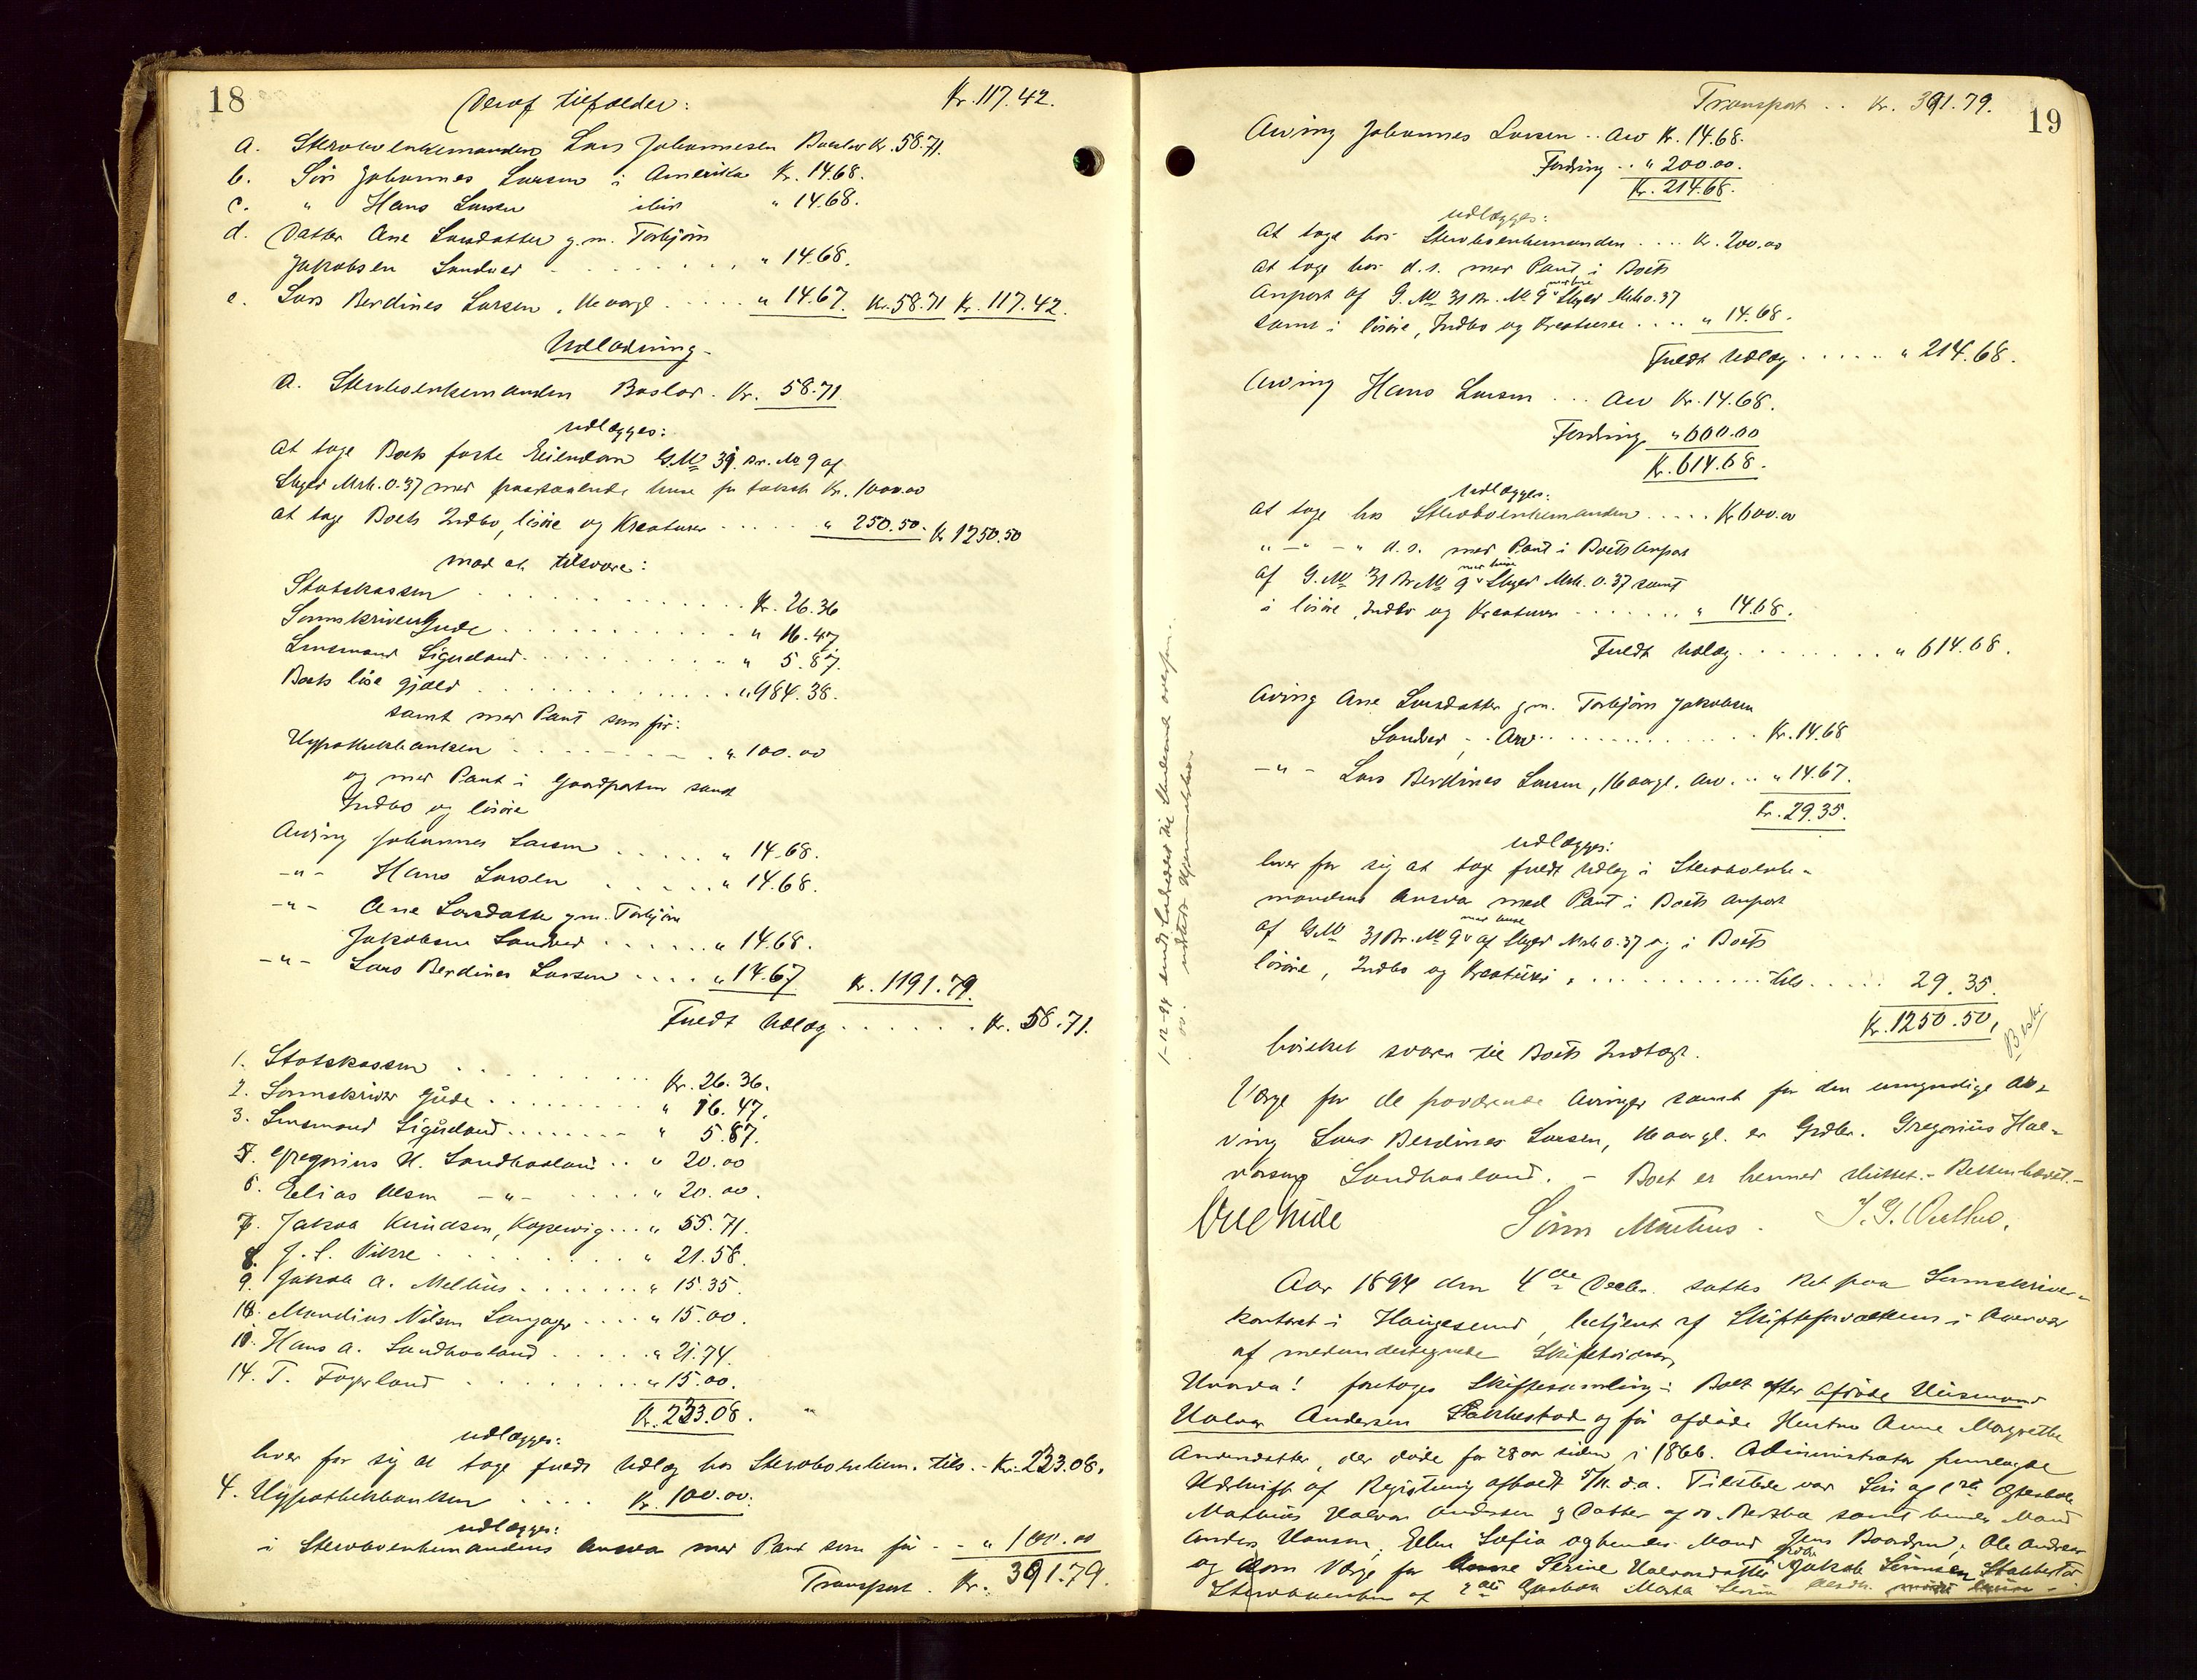 18
Deraf tilfalder: Kr. 117.42.
a. Sterboenkemanden Lars Johannesen Boeslod Kr. 58.71.
b. Søn Johannes Larsen i Amerika Kr. 14.68.
c. " Hans Larsen ibid " 14.68.
d. Datter Ane Larsdatter g.m. Torbjørn
Jakobsen Sandved . . . . . . " 14.68.
e. Lars Berdines Larsen, 16 aargl. . . . . " 14.67. Kr. 58.71 Kr. 117.42.
Udlodning.
a. Sterboenkemanden Boslod. Kr. 58.71.
udlægges:
at tage Boets faste Eiendom G.No 31 Br. No 9 af
Skyld Mrk. 0.37 med paastaaende huse for takst Kr. 1000.00
at tage Boets Indbo, løsøre og Kreaturer . . . . . " 250.50. Kr 1250.50
mod at tilsvare:
Statskassen . . . . . . . . . . . Kr. 26.36
Sorenskriver Gude . . . . . . . . . . " 16.47
Lensmand Sigveland . . . . . . . . . " 5.87.
Boets løse gjæld . . . . . . . . . . . " 984.38.
samt med Pant som før:
Hypothekbanken . . . . . . . " 100.00
og med Pant i Gaardparten samt
Indbo og løsøre
Arving Johannes Larsen . . . . . " 14.68.
-"- Hans Larsen . . . . . " 14.68.
-"- Ane Larsdatter g.m. Torbjørn
Jakobsen Sandved . . . . . . " 14.68.
-"- Lars Berdines Larsen . . . . " 14.67 Kr. 1191.79.
Fuldt Udlæg . . . . . . Kr. 58.71.
1. Statskassen . . . . . . . Kr. 26.36.
2. Sorenskriver Gude . . . . . . . . " 16.47.
3. Lensmand Sigveland . . . . . . . " 5.87.
5. Gregorius H. Sandhaaland . . " 20.00
6. Elias Olsen -"- . . . . " 20.00.
7. Jakob Knudsen, Kopervig . . . " 55.71.
8. J. S. Vikre . . . . . . . " 21.58.
9. Jakob A. Melhus . . . . . . . " 15.35.
Mandius Nilsen . . . . " 15.00.
Hans A. Sandhaaland . . . . . " 21.74.
14. T. Fagerland . . . . . . . . " 15.00.
Kr. 233.08.
udlægges:
hver for sig at tage fuldt Udlæg hos Sterboenkem. tils. - Kr. 233.08.
4. Hypothekbanken . . . . Kr. 100.00.
udlægges:
i Sterboenkemandens Ansvar med Pant som før - - " 100.00
Transport. Kr. 391.79.
19
Transport . . Kr. 391.79.
Arving Johannes Larsen . . Arv Kr. 14.68.
Fordring . . " 200.00.
Kr. 214.68.
udlægges:
at tage hos Sterboenkemanden . . . . Kr. 200.00
at tage hos d.s. med Pant i Boets
Anpart af G. No 31 Br. No 9 med huse Skyld Mrk 0.37
samt i løsøre, Indbo og Kreaturer . . . . " 14.68.
Fuldt Udlæg . . . . . . " 214.68.
Arving Hans Larsen . . . Arv Kr. 14.68.
Fordring " 600.00
Kr. 614.68.
udlægges:
at tage hos Sterboenkemanden . . . . . Kr 600.00
" - " - " d.s. med Pant i Boets Anpart
af G. No 31 Br. No 9 med huse Skyld Mrk. 0.37 samt
i løsøre, Indbo og Kreaturer . . . . . . . " 14.68.
Fuldt Udlæg . . . . . . . " 614.68.
Arving Ane Larsdatter g.m. Torbjørn Jakobsen
Sandved, Arv . . . . . . . . . . . . Kr. 14.68
-"- Lars Berdines Larsen, 16 aargl. Arv. . . " 14.67.
Kr. 29.35.
udlægges:
hver for sig at tage fuldt Udlæg i Sterboenke-
mandens Ansvar med Pant i Boets Anpart
af G.No 31 Br. No 9 med huse af Skyld Mrk 0.37 og i Boets
løsøre, Indbo og Kreaturer . . . . . . . . . . . tils. . . . . 29.35.
Kr. 1250.50,
hvilket svarer til Boets Indtægt.
Værge for de fraværende Arvinger samt for den umyndige Ar-
ving Lars Berdines Larsen, 16 aargl. er Grdbr. Gregorius Hal-
vorsen Sandhaaland. - Boet er hermed sluttet. - Retten hævet. -
Gude Sørn Mæhus. J. G. Velhus.
Aar 1894 den 4de Decbr. sattes Ret paa Sorenskriver-
kontoret i Haugesund, betjent af Skifteforvalteren i Overvær
af medundertegnede Skiftevidner,
Hvorda! foretoges Skiftesamling i Boet efter afdøde Husmand
Halvor Andersen Sakkestad og før afdøde Hustru Anne Margrethe
Andersdatter, der døde for 28 aar siden i 1866. Administrator fremlagde
Udskrift af Registrering afholdt 5/11 d.a. Tilstede var Søn af 1ste Ægteskab
Mathias Halvor Andersen og Datter af do. Bertha samt hendes Mand
Anders Hansen, Elen Sofia og hendes Mand Jens Baardsen, Ole Andreas
og som Værge for Serine Halvorsdatter Jakob Simonsen
Sterboenken af 2det Marta